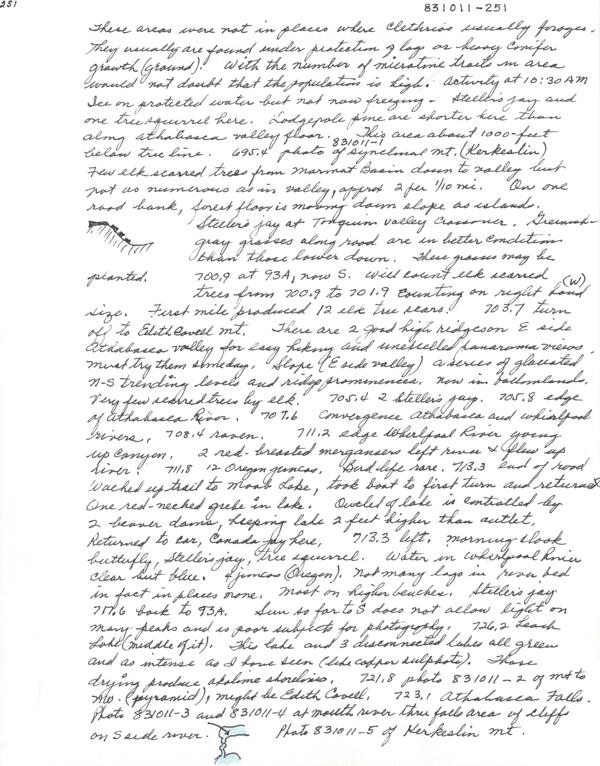 251
831011-251
These areas were not in places where Clethrios usually forages.
They usually are found under protection of logs or heavy conifer
growth (ground). With the number of microtine trails in area
would not doubt that the population is high. Activity at 10:30 AM
Ice on protected water but not now freezing. Steller's jay and
one tree squirrel here. Lodgepole pine are shorter here than
along Athabasca valley floor. This area about 1000-feet
below tree line. 695.4 photo 831011-1 of synclinal mt. (Kerkeslin)
Few elk scarred trees from Marmat Basin down to valley but
not as numerous as in valley, approx 2 per 1/10 mi. On one
road bank, forest floor is moving down slope as island.
Steller's jay at Tonquin Valley Crossover. Greenish-
gray grasses along road are in better condition
than those lower down. These grasses may be
planted. 700.9 at 93A, now S. Will count elk scarred
trees from 700.9 to 701.9 counting on right hand (W)
size. First mile produced 12 elk tree scars. 703.7 turn
off to Edith Cavell Mt. There are 2 good high ridges on E side
Athabasca valley for easy hiking and unexcelled panorama views.
Must try them someday. Slope (E side valley) a series of glaciated
N-S trending levels and ridge prominences. Now in bottomlands.
Very few scarred trees by elk. 705.4 2 Steller's jay. 705.8 edge
of Athabasca River. 707.6 Convergence Athabasca and Whirlpool
rivers. 708.4 raven. 711.2 edge Whirlpool River going
up canyon. 2 red-breasted mergansers left river & flew up
river. 711.8 12 Oregon juncos. Bird life rare. 713.3 end of road
Walked up trail to Moab Lake, took boat to first turn and returned
One red-necked grebe in lake. Outlet of lake is controlled by
2 beaver dams, keeping lake 2 feet higher than outlet.
Returned to car, Canada jay here, 713.3 left. Morning cloak
butterfly, Steller's jay, tree squirrel. Water in Whirlpool River
clear but blue. juncos (Oregon). Not many logs in river bed
in fact in places none. Most on higher beaches. Steller's jay
717.6 back to 93A. Sun so far to S does not allow light on
many peaks and is poor subjects for photography. 726.2 Leach
Lake (middle of it). This lake and 3 disconnected lakes all green
and as intense as I have seen (like copper sulphate). Those
drying produce alkaline shorelines. 721.8 photo 831011-2 of mt to
NW. (pyramid), might be Edith Cavell. 723.1 Athabasca Falls.
Photo 831011-3 and 831011-4 at mouth river thru falls area of cliffs
on S side river. Photo 831011-5 of Kerkeslin mt.